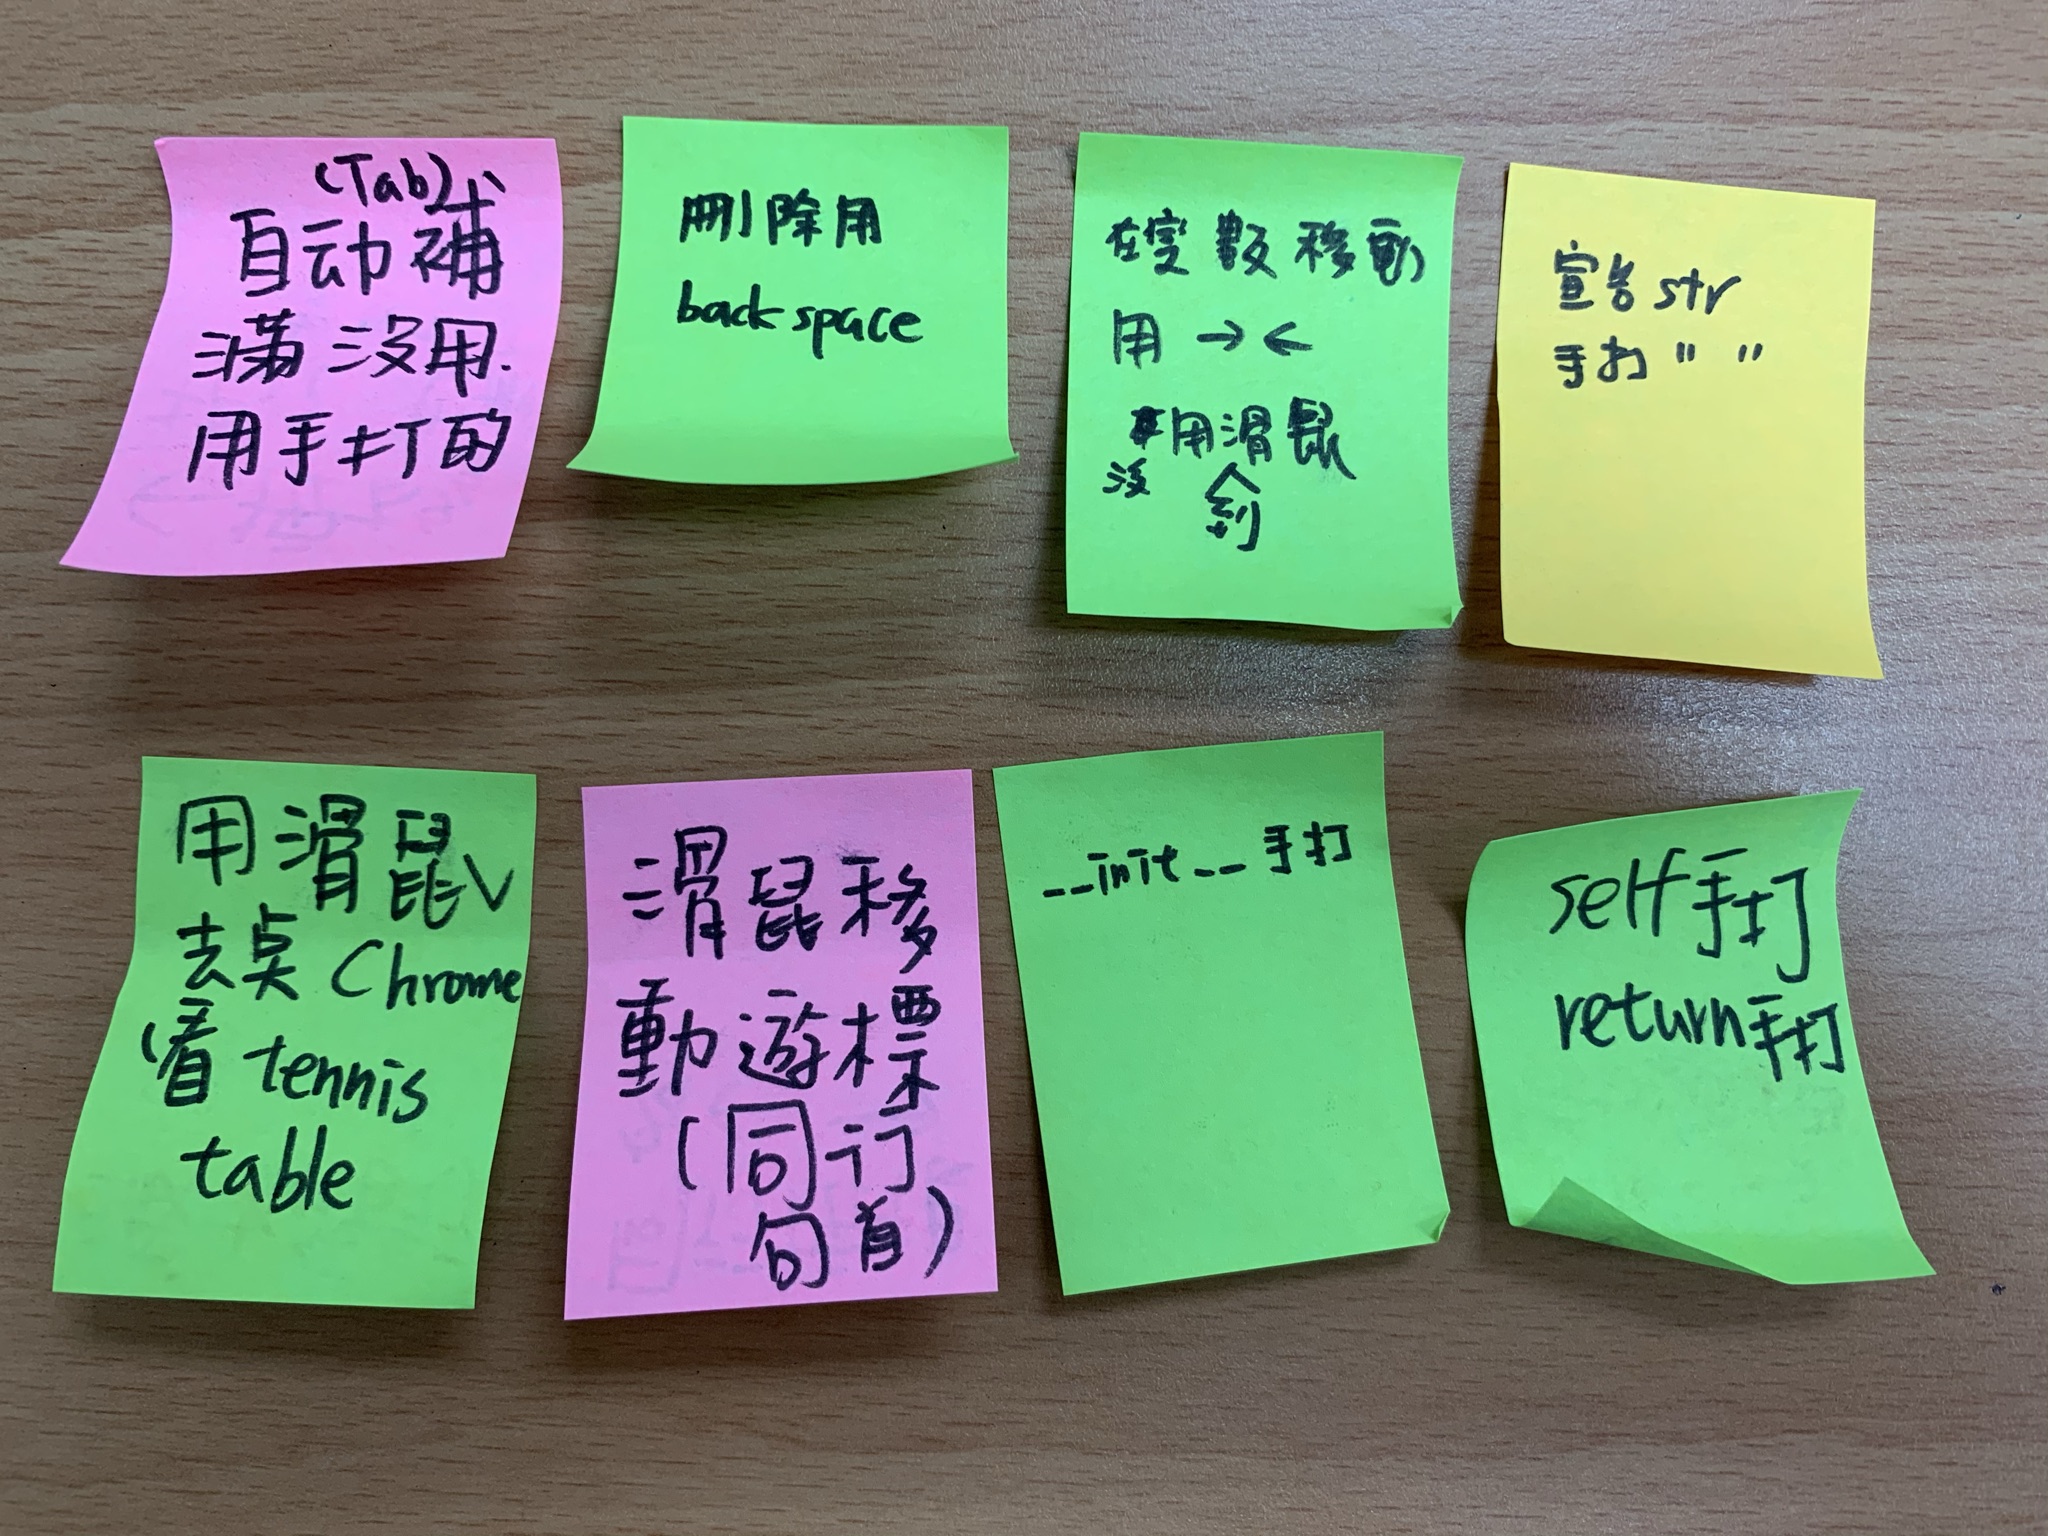 (Tab)
自动補
滿沒用.
用手打的
刪除用
backspace
在變數移動
用 → ←
用滑鼠
沒
宣告str
手打 " "
用滑鼠
去桌 Chrome
看 tennis
table
滑鼠移
動遊標
(同行
句首)
__init__手打
self手打
return手打